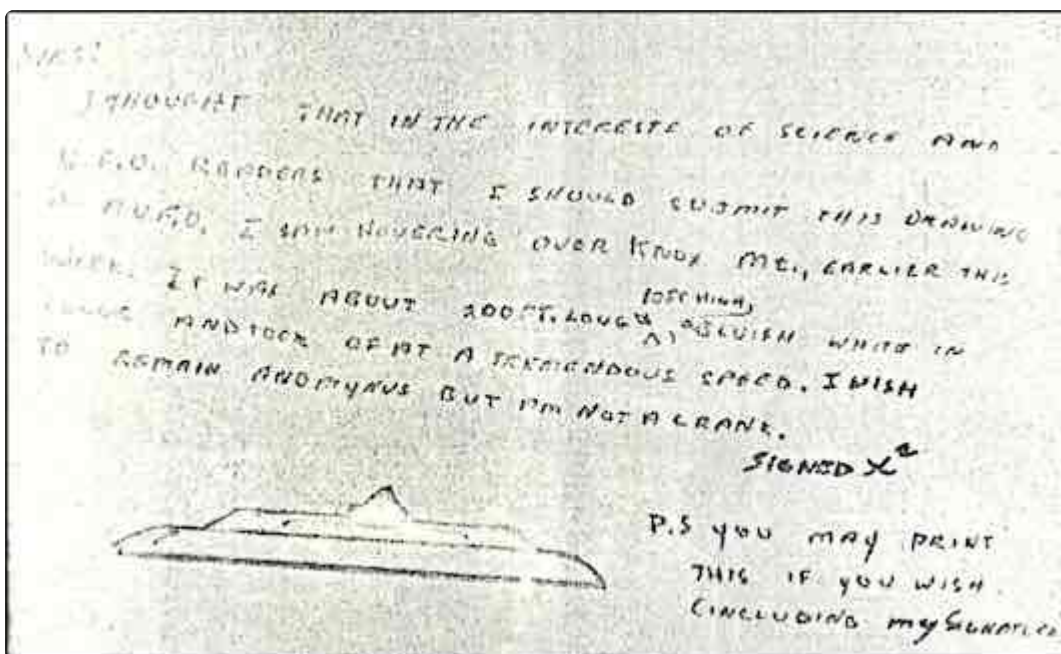 SIRS:
I THOUGHT THAT IN THE INTERESTE OF SCIENCE AND
U.F.O. READERS THAT I SHOULD SUBMIT THIS DRAWING
I SAW HOVERING OVER KNOX MT., EARLIER THIS
WEEK. IT WAS ABOUT 200 FT. LONG 10 FT HIGH, BLUISH WHITE IN
AND TOCK OF AT A TREMENDOUS SPEED. I WISH
TO REMAIN ANOMYNUS BUT I'M NOT A CRANK.
SIGNED X
P.S YOU MAY PRINT
THIS IF YOU WISH
(INCLUDING MY